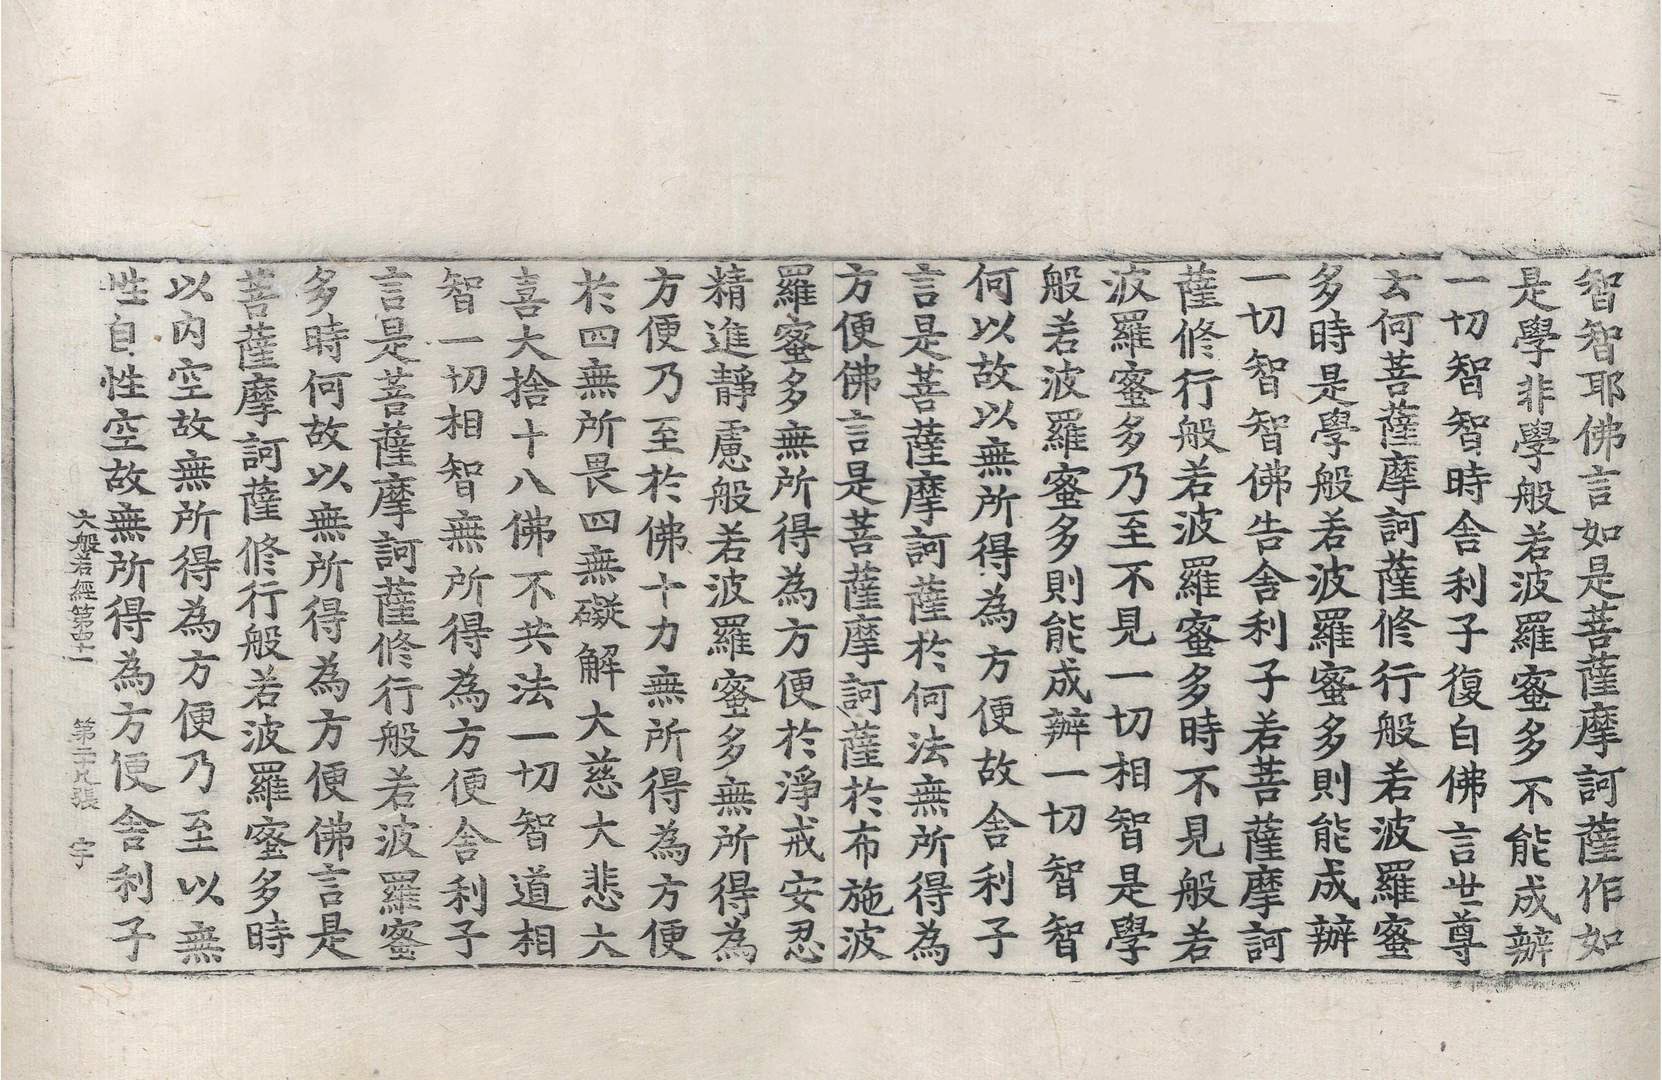 智智耶佛言如是菩薩摩訶薩作如
是學非學般若波羅蜜多不能成辦
一切智智時舍利子復白佛言世尊
云何菩薩摩訶薩修行般若波羅蜜
多時是學般若波羅蜜多則能成辦
一切智智佛告舍利子若菩薩摩訶
薩修行般若波羅蜜多時不見般若
波羅蜜多乃至不見一切相智是學
般若波羅蜜多則能成辦一切智智
何以故以無所得為方便故舍利子
言是菩薩摩訶薩於何法無所得為
方便佛言是菩薩摩訶薩於布施波
羅蜜多無所得為方便於淨戒安忍
精進靜慮般若波羅蜜多無所得為
方便乃至於佛十力無所得為方便
於四無所畏四無礙解大慈大悲大
喜大捨十八佛不共法一切智道相
智一切相智無所得為方便舍利子
言是菩薩摩訶薩修行般若波羅蜜
多時何故以無所得為方便佛言是
菩薩摩訶薩修行般若波羅蜜多時
以內空故無所得為方便乃至以無
性自性空故無所得為方便舍利子
大般若經第四十一 第二十張 宇